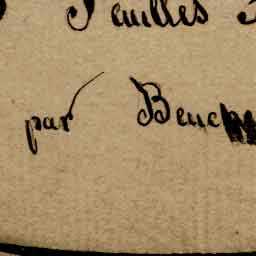 Feuilles
par Beuc